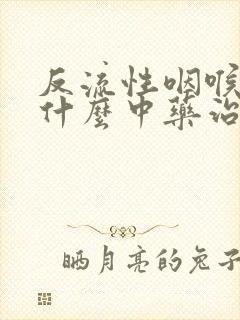 反流性咽喉
什麼中藥治
晒月亮的兔子